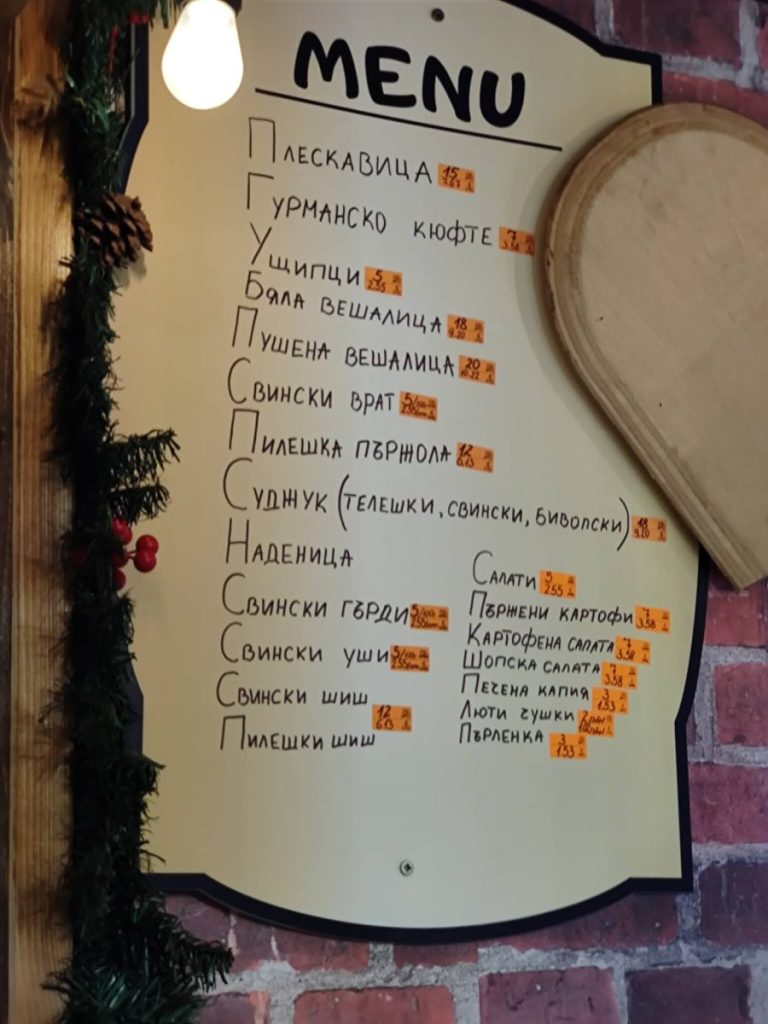 MENU
Плескавица 15 7.67
Гурманско кюфте 7 3.58
Ущипци 5 2.55
Бяла вешалица 18 9.20
Пушена вешалица 20 10.22
Свински врат 5
Пилешка пържола 12 6.13
Суджук (телешки, свински, биволски) 18 9.20
Наденица
Свински гърди 5
Свински уши 5
Свински шиш
12 6.13
Пилешки шиш
Салати 5 2.55
Пържени картофи 7 3.58
Картофена салата 7 3.58
Шопска салата 7 3.58
Печена капия 3 1.53
Люти чушки 2
Пърленка 3 1.53